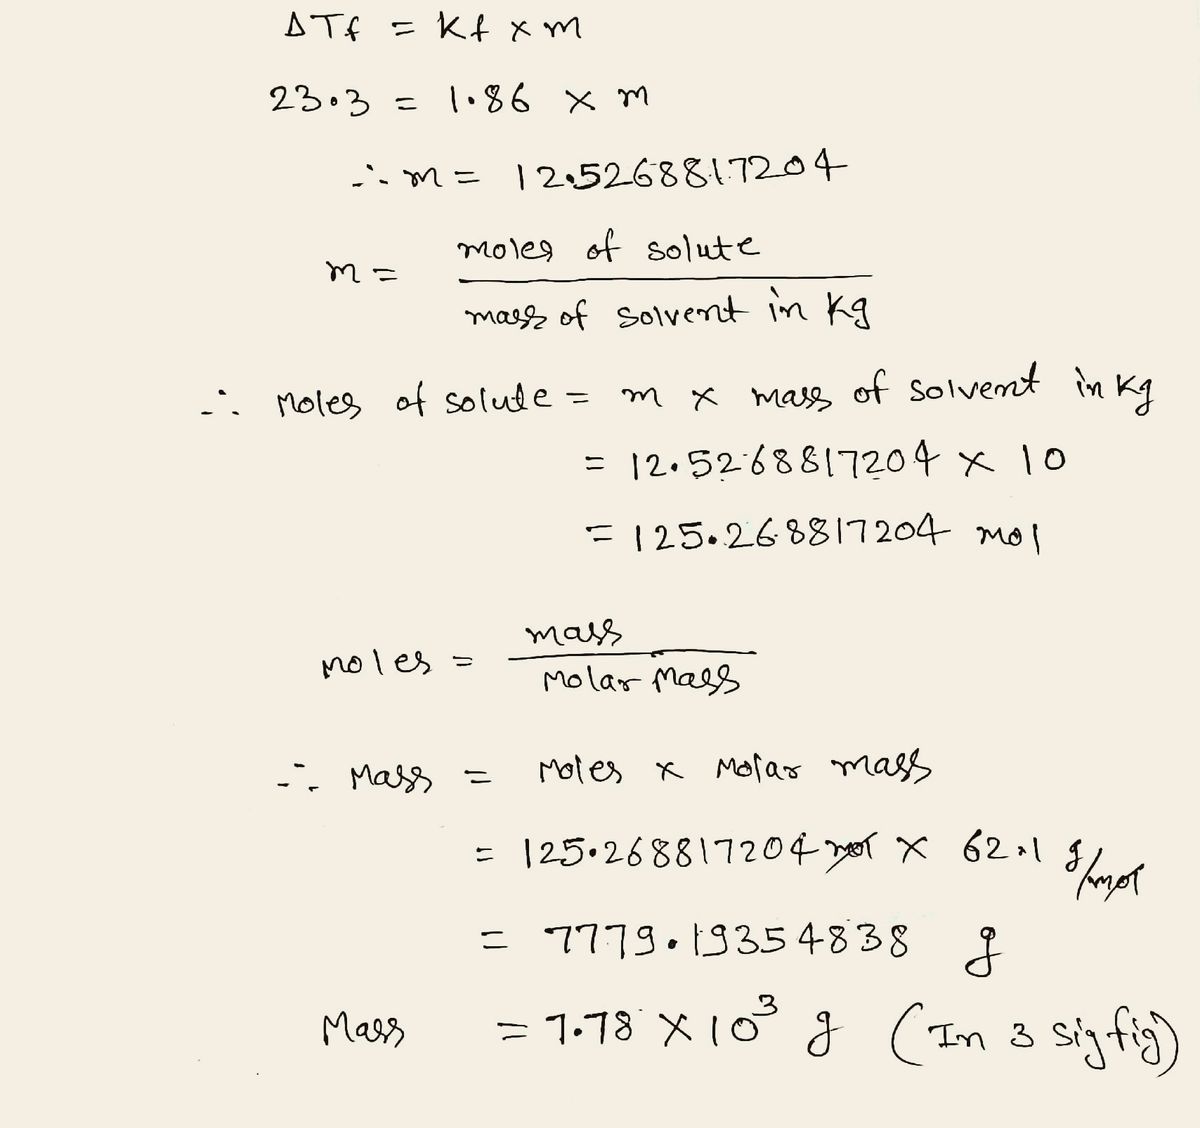 ΔTf = Kf × m
23.3 = 1.86 × m
∴ m = 12.5268817204
m = moles of solute
mass of solvent in kg
∴ Moles of solute = m × mass of solvent in kg
= 12.5268817204 × 10
= 125.268817204 mol
moles = mass
Molar Mass
∴ Mass = Moles × Molar mass
= 125.268817204 mol × 62.1 g/mol
= 7779.19354838 g
Mass = 7.78 × 10³ g (In 3 sig fig)